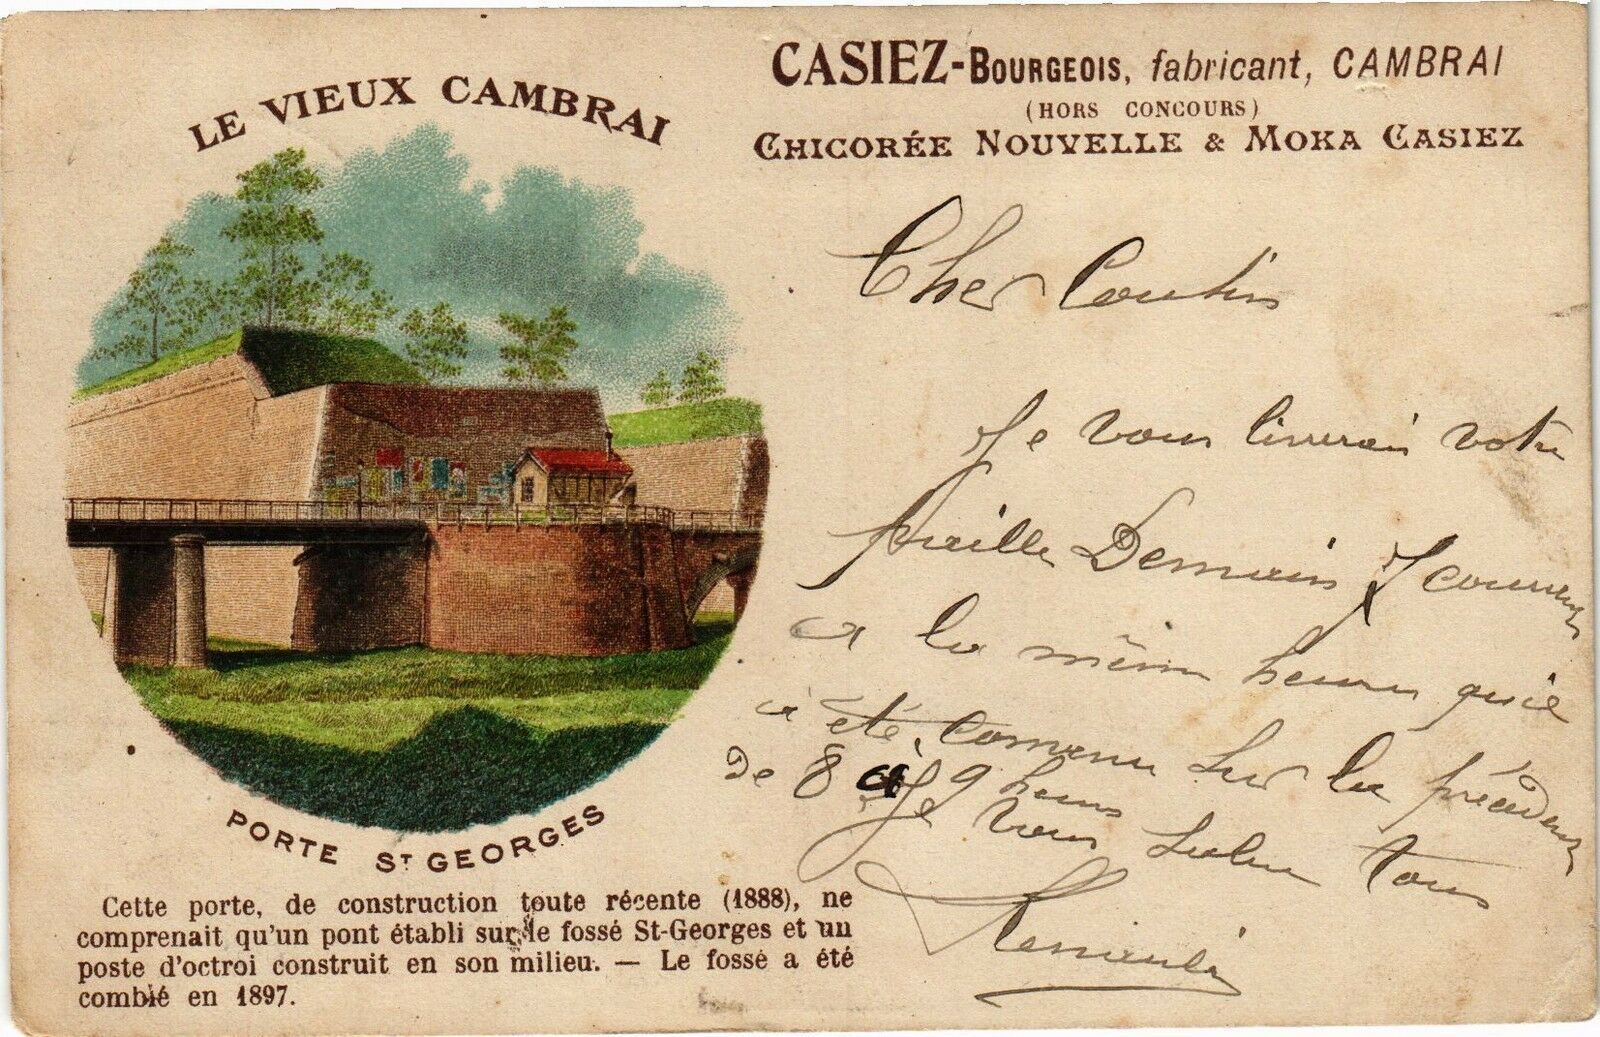 LE VIEUX CAMBRAI
PORTE ST GEORGES
Cette porte, de construction toute récente (1888), ne
comprenait qu'un pont établi sur le fossé St-Georges et un
poste d'octroi construit en son milieu. — Le fossé a été
comblé en 1897.
CASIEZ-BOURGEOIS, fabricant, CAMBRAI
(HORS CONCOURS)
CHICORÉE NOUVELLE & MOKA CASIEZ
Cher
Je vous livrerai votre
Demain
a la même heure
a été sur la
de 8 à 9 heures
Je vous salue tous